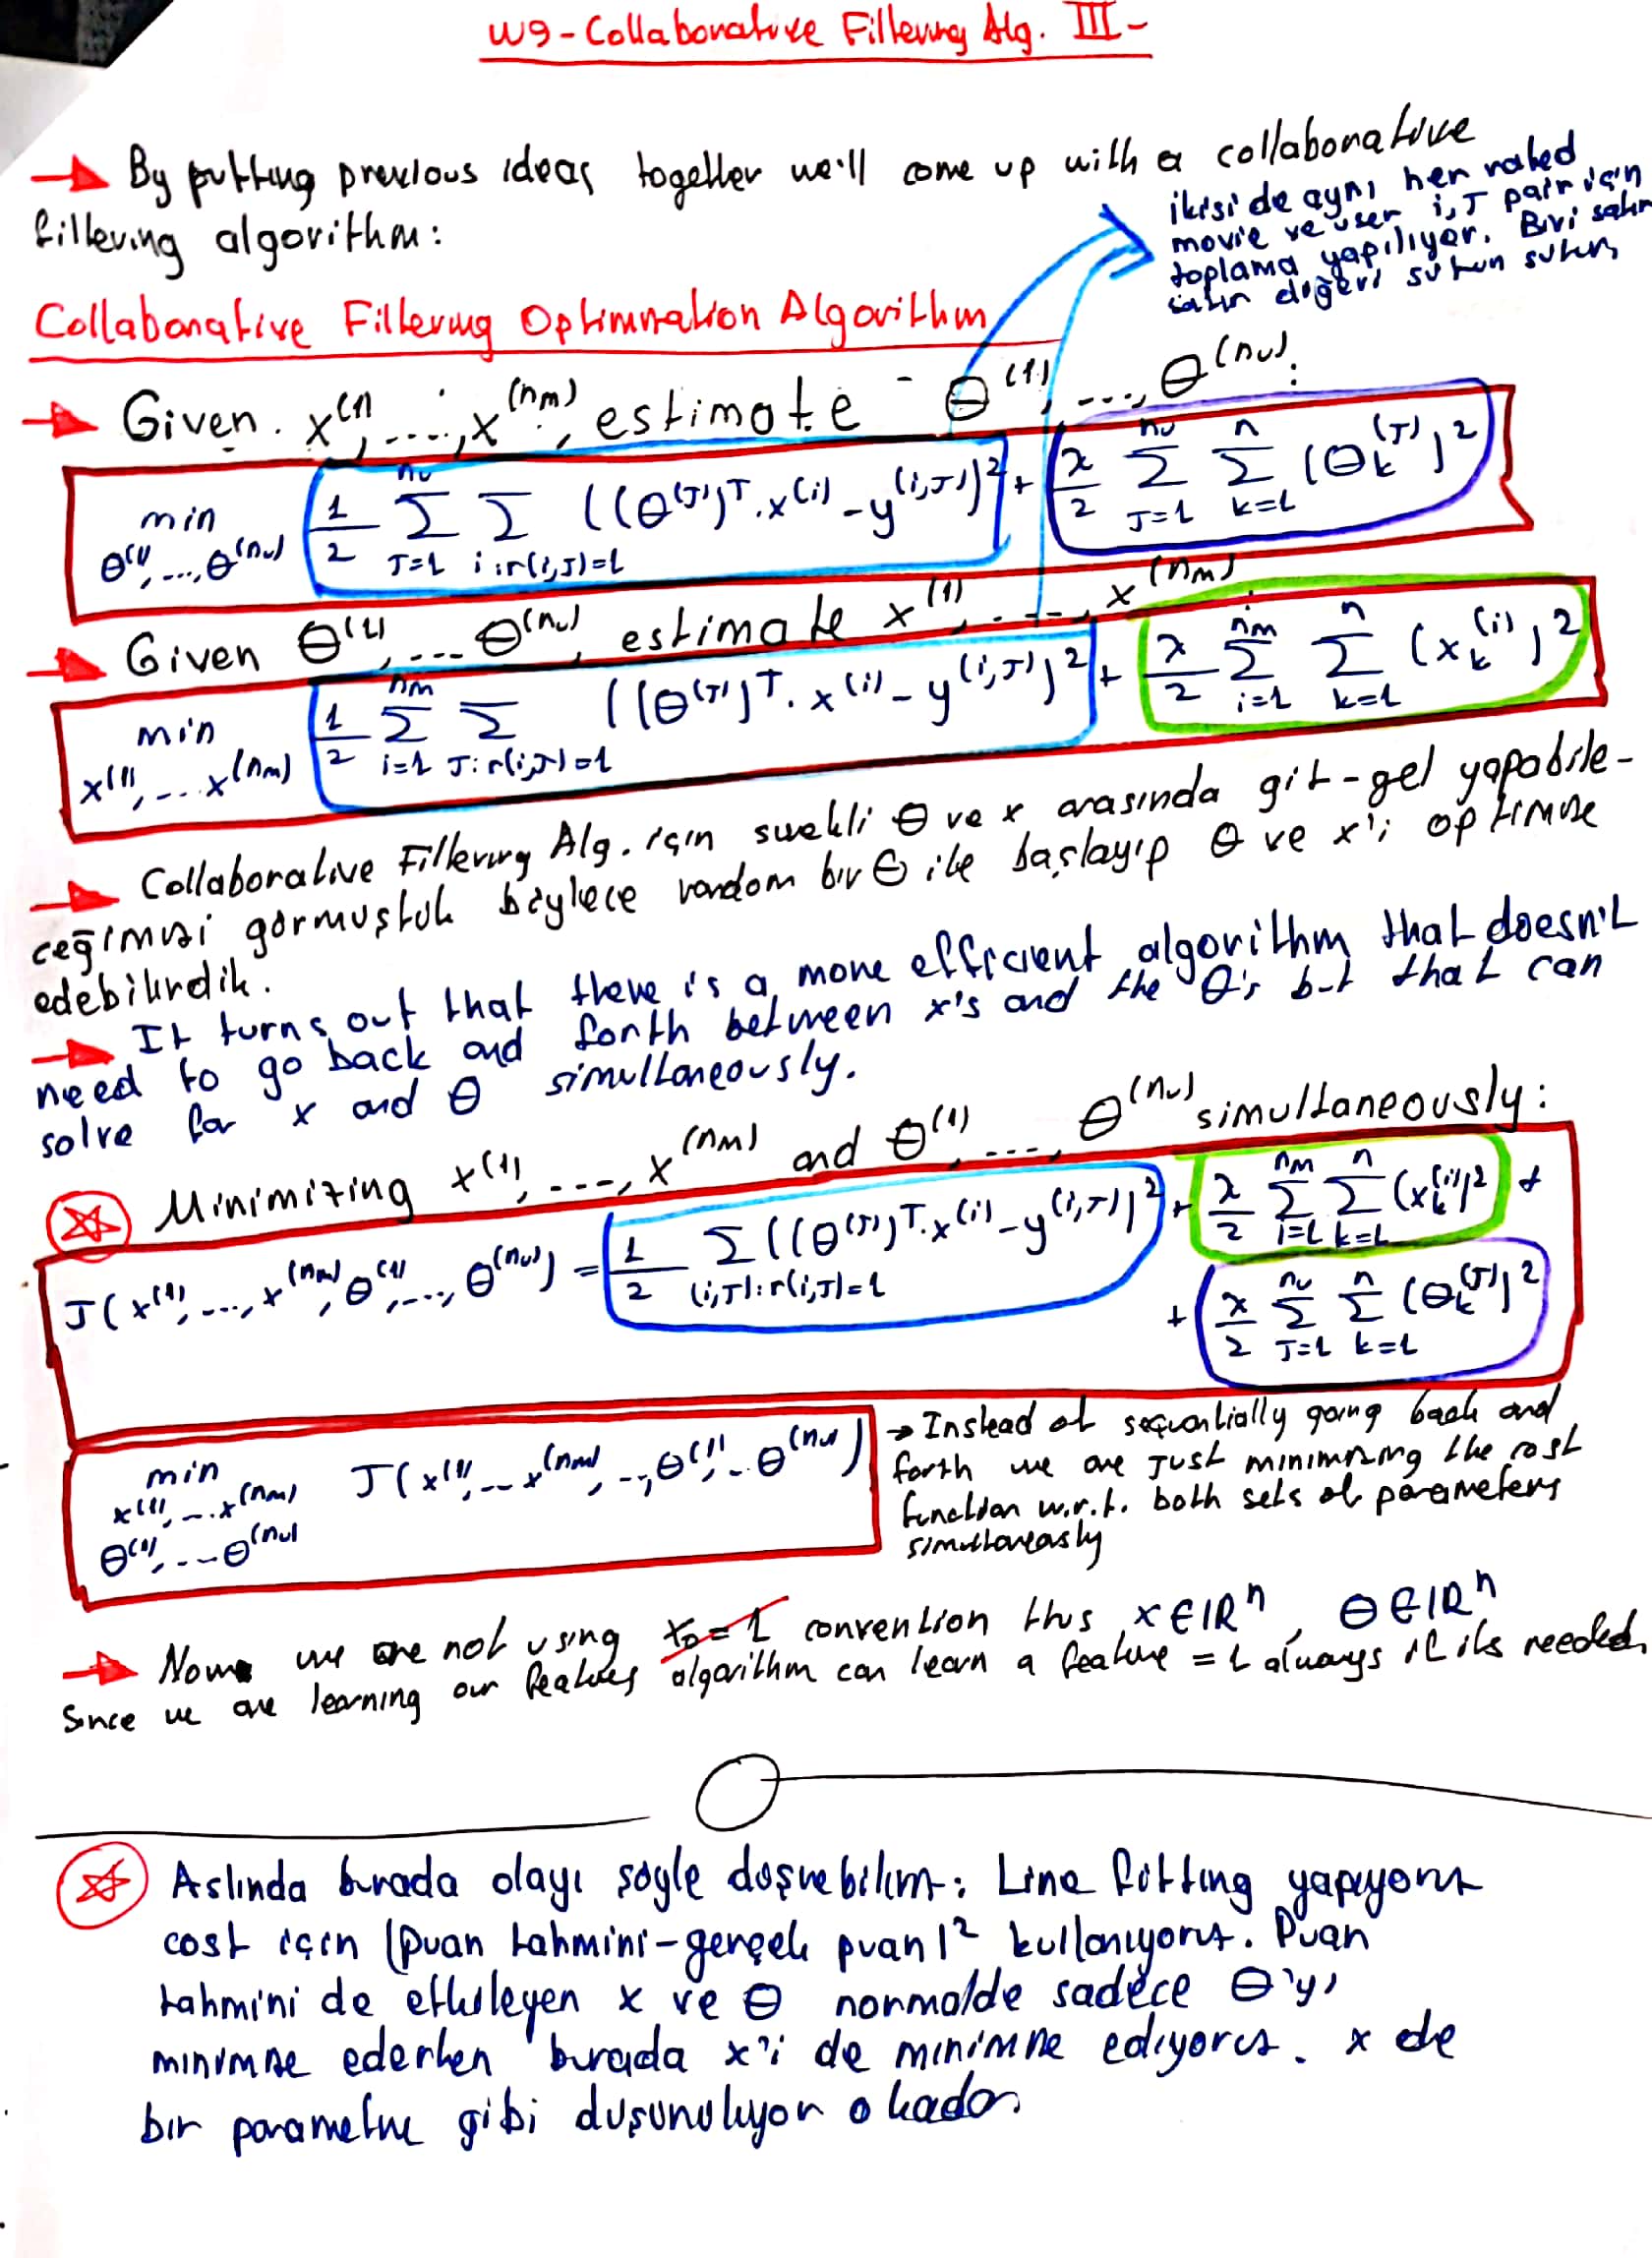 W9 - Collaborative Filtering Alg. III -
→ By putting previous ideas together we'll come up with a collaborative
filtering algorithm:
ikisi de aynı her rated
movie ve user i,j pair için
toplama yapılıyor. Biri satır
satır diğeri sutun sutun
Collaborative Filtering Optimization Algorithm
→ Given x^(1), ..., x^(nm), estimate θ^(1), ..., θ^(nu):
min θ^(1), ..., θ^(nu) 1/2 Σ_{J=1}^{nu} Σ_{i:r(i,J)=1} ((θ^(J))^T . x^(i) - y^(i,J))^2 + λ/2 Σ_{J=1}^{nu} Σ_{k=1}^{n} (θ_k^(J))^2
→ Given θ^(1), ... θ^(nu), estimate x^(1), ..., x^(nm):
min x^(1), ... x^(nm) 1/2 Σ_{i=1}^{nm} Σ_{J:r(i,J)=1} ((θ^(J))^T . x^(i) - y^(i,J))^2 + λ/2 Σ_{i=1}^{nm} Σ_{k=1}^{n} (x_k^(i))^2
→ Collaborative Filtering Alg. için surekli θ ve x arasında git-gel yapabile-
ceğimizi görmuştuk böylece random bir θ ile başlayıp θ ve x'i optimize
edebilirdik.
→ It turns out that there is a more efficient algorithm that doesn't
need to go back and forth between x's and the θ's but that can
solve for x and θ simultaneously.
Minimizing x^(1), ..., x^(nm) and θ^(1), ..., θ^(nu) simultaneously:
J(x^(1), ..., x^(nm), θ^(1), ..., θ^(nu)) = 1/2 Σ_{(i,J):r(i,J)=1} ((θ^(J))^T . x^(i) - y^(i,J))^2 + λ/2 Σ_{i=1}^{nm} Σ_{k=1}^{n} (x_k^(i))^2 +
+ λ/2 Σ_{J=1}^{nu} Σ_{k=1}^{n} (θ_k^(J))^2
min x^(1), ... x^(nm) θ^(1), ... θ^(nu) J(x^(1), ... x^(nm), .., θ^(1), .. θ^(nu))
→ Instead of sequentially going back and
forth we are just minimizing the cost
function w.r.t. both sets of parameters
simultaneously
→ Now we are not using x0=1 convention thus x∈IR^n, θ∈IR^n
Since we are learning our features algorithm can learn a feature = 1 always if its needed.
Aslında burada olayı şöyle düşünebiliriz: Line fitting yapıyoruz
cost için (puan tahmini - gerçek puan)^2 kullanıyoruz. Puan
tahmini de etkileyen x ve θ normalde sadece θ'yı
minimize ederken burada x'i de minimize ediyoruz. x de
bir parametre gibi duşunuluyor o kadar.